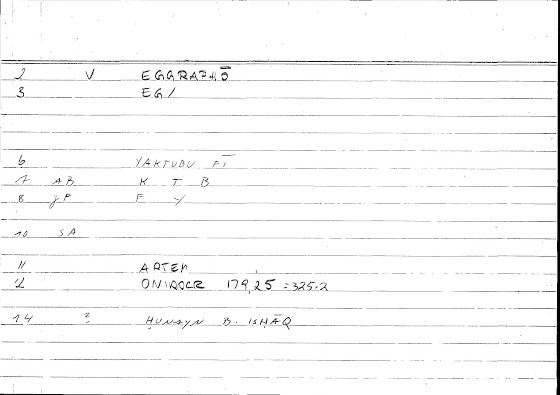 2 V EGGRAPHŌ
3 EG/
6 YAKTUBU FĪ
7 AB K T B
8 JP F Y
10 SA
11 ARTEM
12 ONIROCR 179,25 = 325.2
14 ? ḤUNAYN B. ISḤĀQ